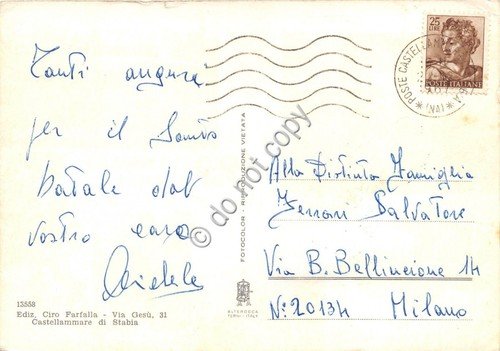 Tanti auguri
per il Santo
Natale dal
vostro caro
Michele
13558
Ediz. Ciro Farfalla - Via Gesù, 31
Castellammare di Stabia
FOTOCOLOR - RIPRODUZIONE VIETATA
ALTEROCCA
TERNI, ITALY
25
POSTE ITALIANE
POSTE CASTELLAM
(NA)
Alla Distinta Famiglia
Ferroni Salvatore
Via B. Bellincione 14
N: 20134 Milano
do not copy